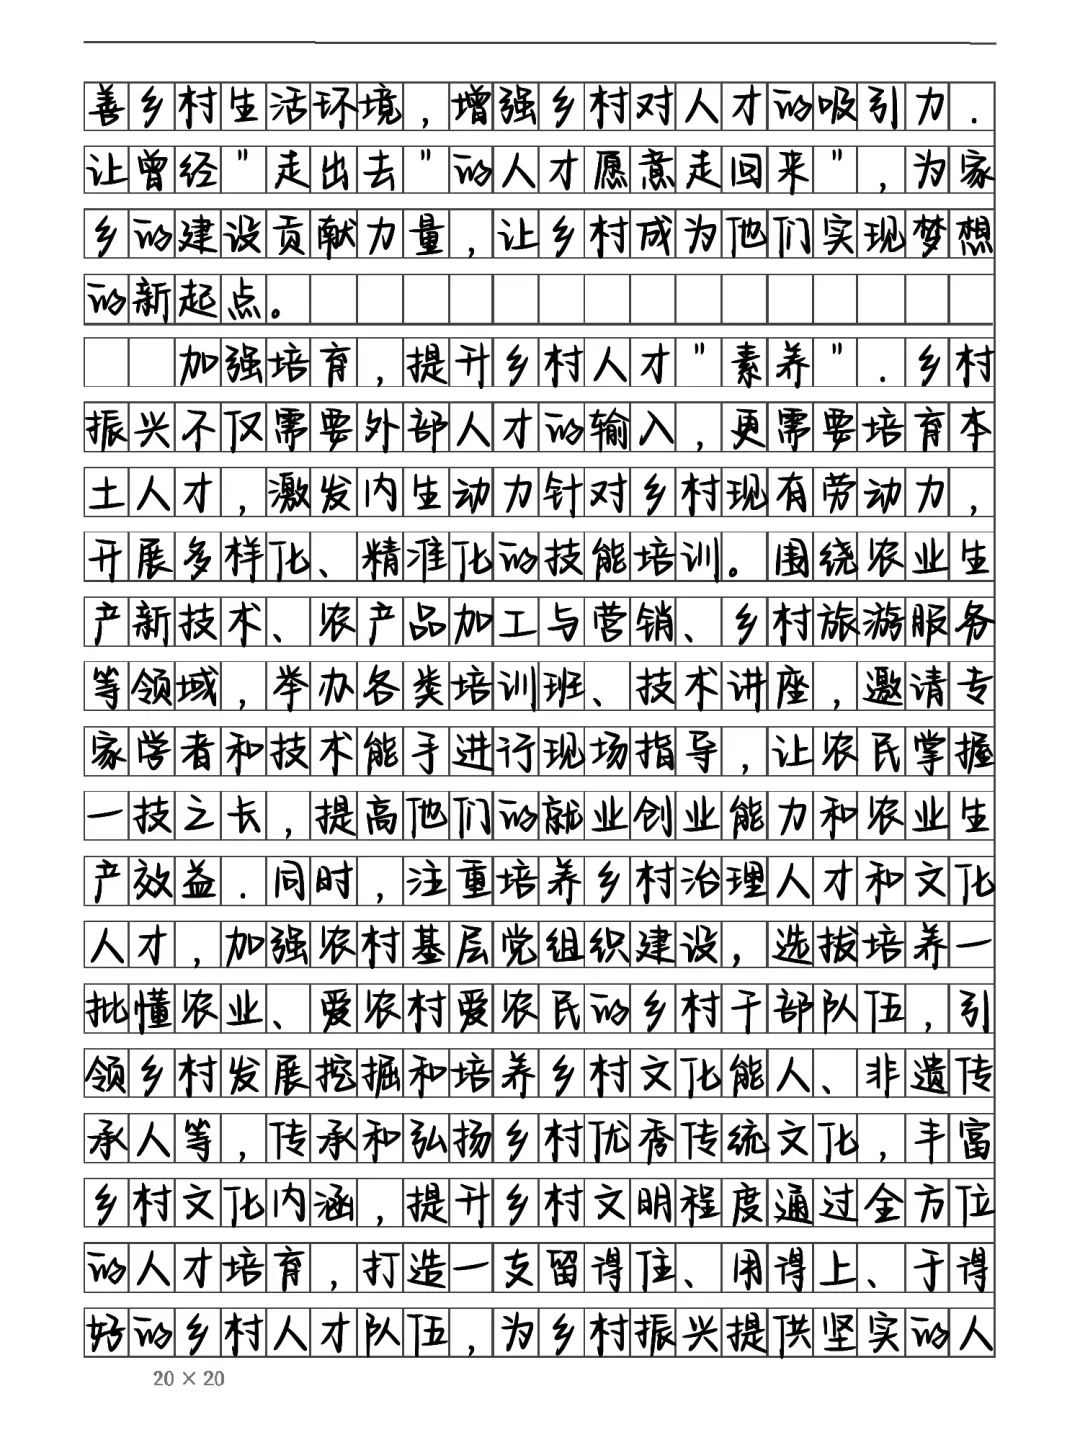 善乡村生活环境，增强乡村对人才的吸引力.
让曾经"走出去"的人才愿意走回来"，为家
乡的建设贡献力量，让乡村成为他们实现梦想
的新起点。
加强培育，提升乡村人才"素养".乡村
振兴不仅需要外部人才的输入，更需要培育本
土人才，激发内生动力针对乡村现有劳动力，
开展多样化、精准化的技能培训。围绕农业生
产新技术、农产品加工与营销、乡村旅游服务
等领域，举办各类培训班、技术讲座，邀请专
家学者和技术能手进行现场指导，让农民掌握
一技之长，提高他们的就业创业能力和农业生
产效益.同时，注重培养乡村治理人才和文化
人才，加强农村基层党组织建设，选拔培养一
批懂农业、爱农村爱农民的乡村干部队伍，引
领乡村发展挖掘和培养乡村文化能人、非遗传
承人等，传承和弘扬乡村优秀传统文化，丰富
乡村文化内涵，提升乡村文明程度通过全方位
的人才培育，打造一支留得住、用得上、于得
好的乡村人才队伍，为乡村振兴提供坚实的人
20×20